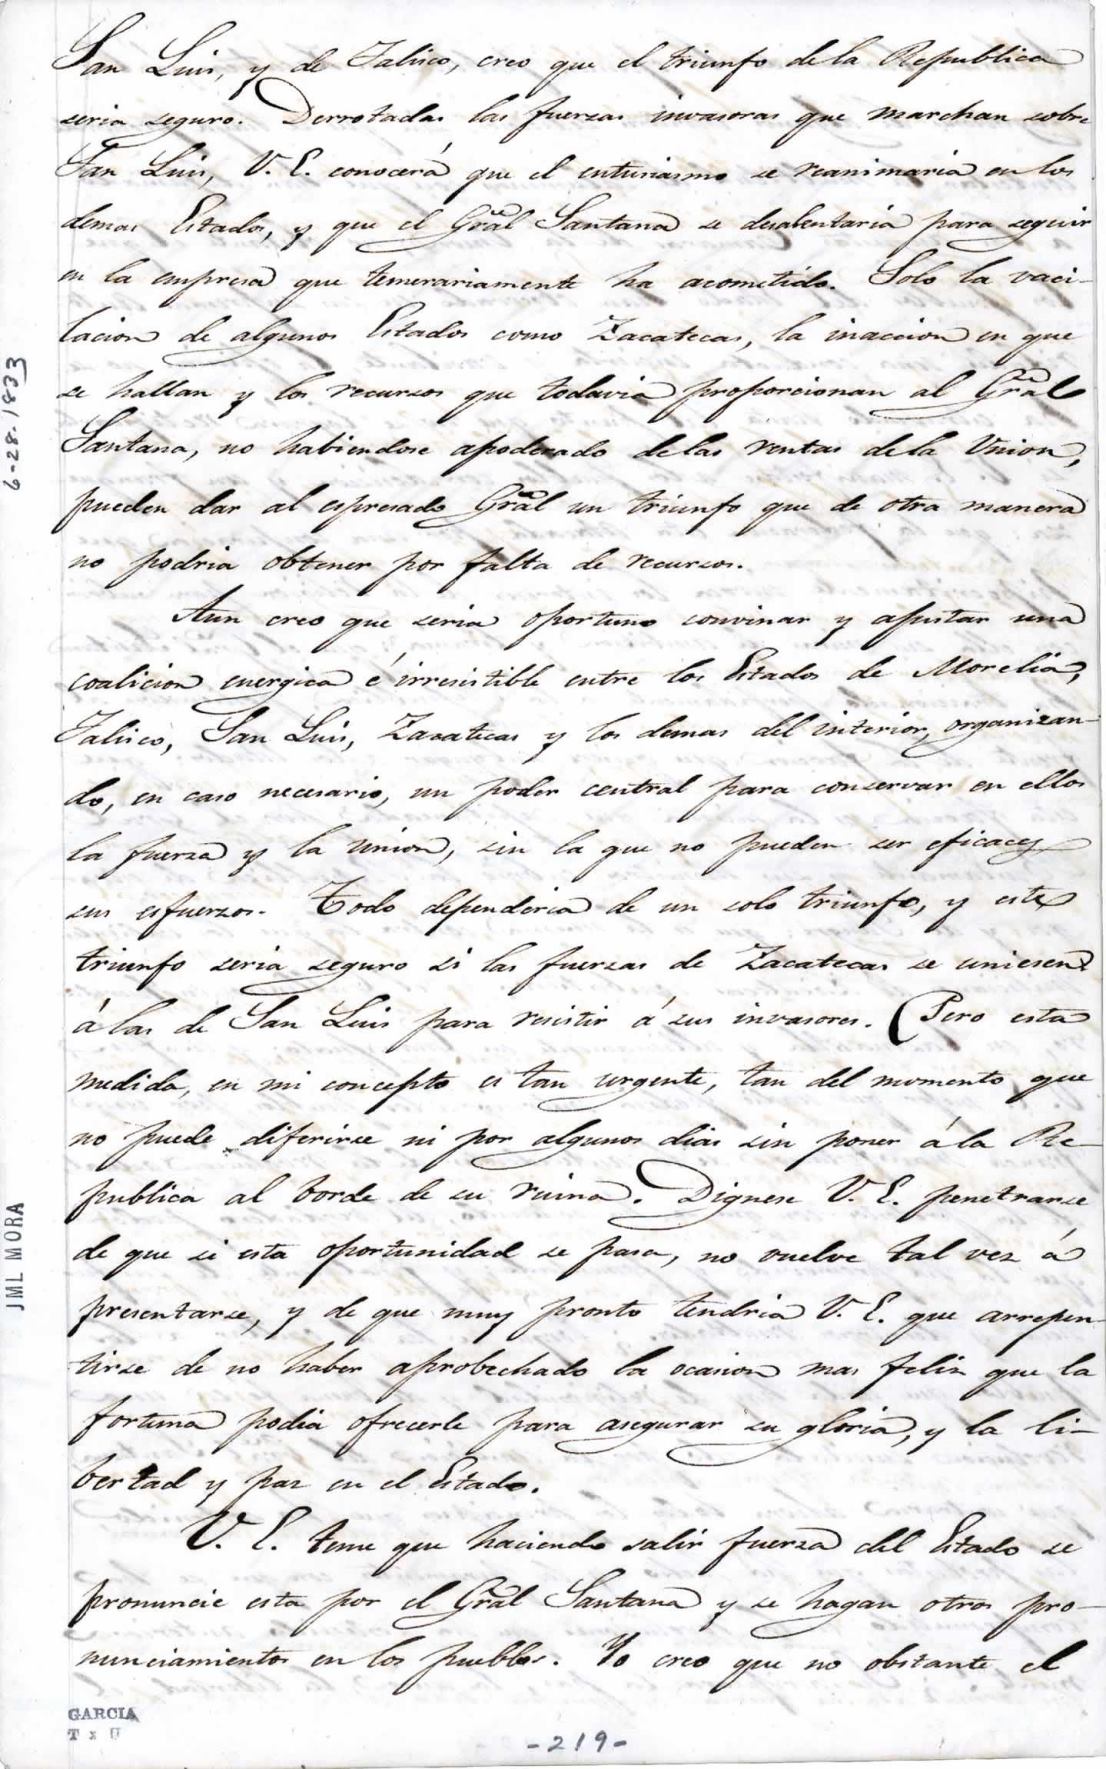 San Luis, y de Jalisco, creo que el triunfo de la Republica
seria seguro. Derrotadas las fuerzas invasoras que marchan sobre
San Luis, V. E. conocerá que el entusiasmo se reanimaria en los
demas Estados, y que el Gral Santana se desalentaria para seguir
en la empresa que temerariamente ha acometido. Solo la vaci-
lacion de algunos Estados como Zacatecas, la inaccion en que
se hallan y los recursos que todavia proporcionan al Gral
Santana, no habiendose apoderado de las rentas de la Union,
pueden dar al espresado Gral un triunfo que de otra manera
no podria obtener por falta de recursos.
Aun creo que seria oportuno convinar y ajustar una
coalicion energica é irresistible entre los Estados de Morelia,
Jalisco, San Luis, Zacatecas y los demas del interior, organizan-
do, en caso necesario, un poder central para conservar en ellos
la fuerza y la union, sin la que no pueden ser eficaces
sus esfuerzos. Todo dependeria de un solo triunfo, y este
triunfo seria seguro si las fuerzas de Zacatecas se uniesen
á las de San Luis para resistir á sus invasores. Pero esta
medida, en mi concepto es tan urgente, tan del momento que
no puede diferirse ni por algunos dias sin poner á la Re-
publica al borde de su ruina. Dignese V. E. penetrarse
de que si esta oportunidad se pasa, no vuelve tal vez á
presentarse, y de que muy pronto tendria V. E. que arrepen-
tirse de no haber aprobechado la ocasion mas feliz que la
fortuna podia ofrecerle para asegurar su gloria, y la li-
bertad y paz en el Estado.
V. E. teme que haciendo salir fuerza del Estado se
pronuncie esta por el Gral Santana y se hagan otros pro-
nunciamientos en los pueblos. Yo creo que no obstante el
GARCIA
-219-
6-28-1833
JML MORA